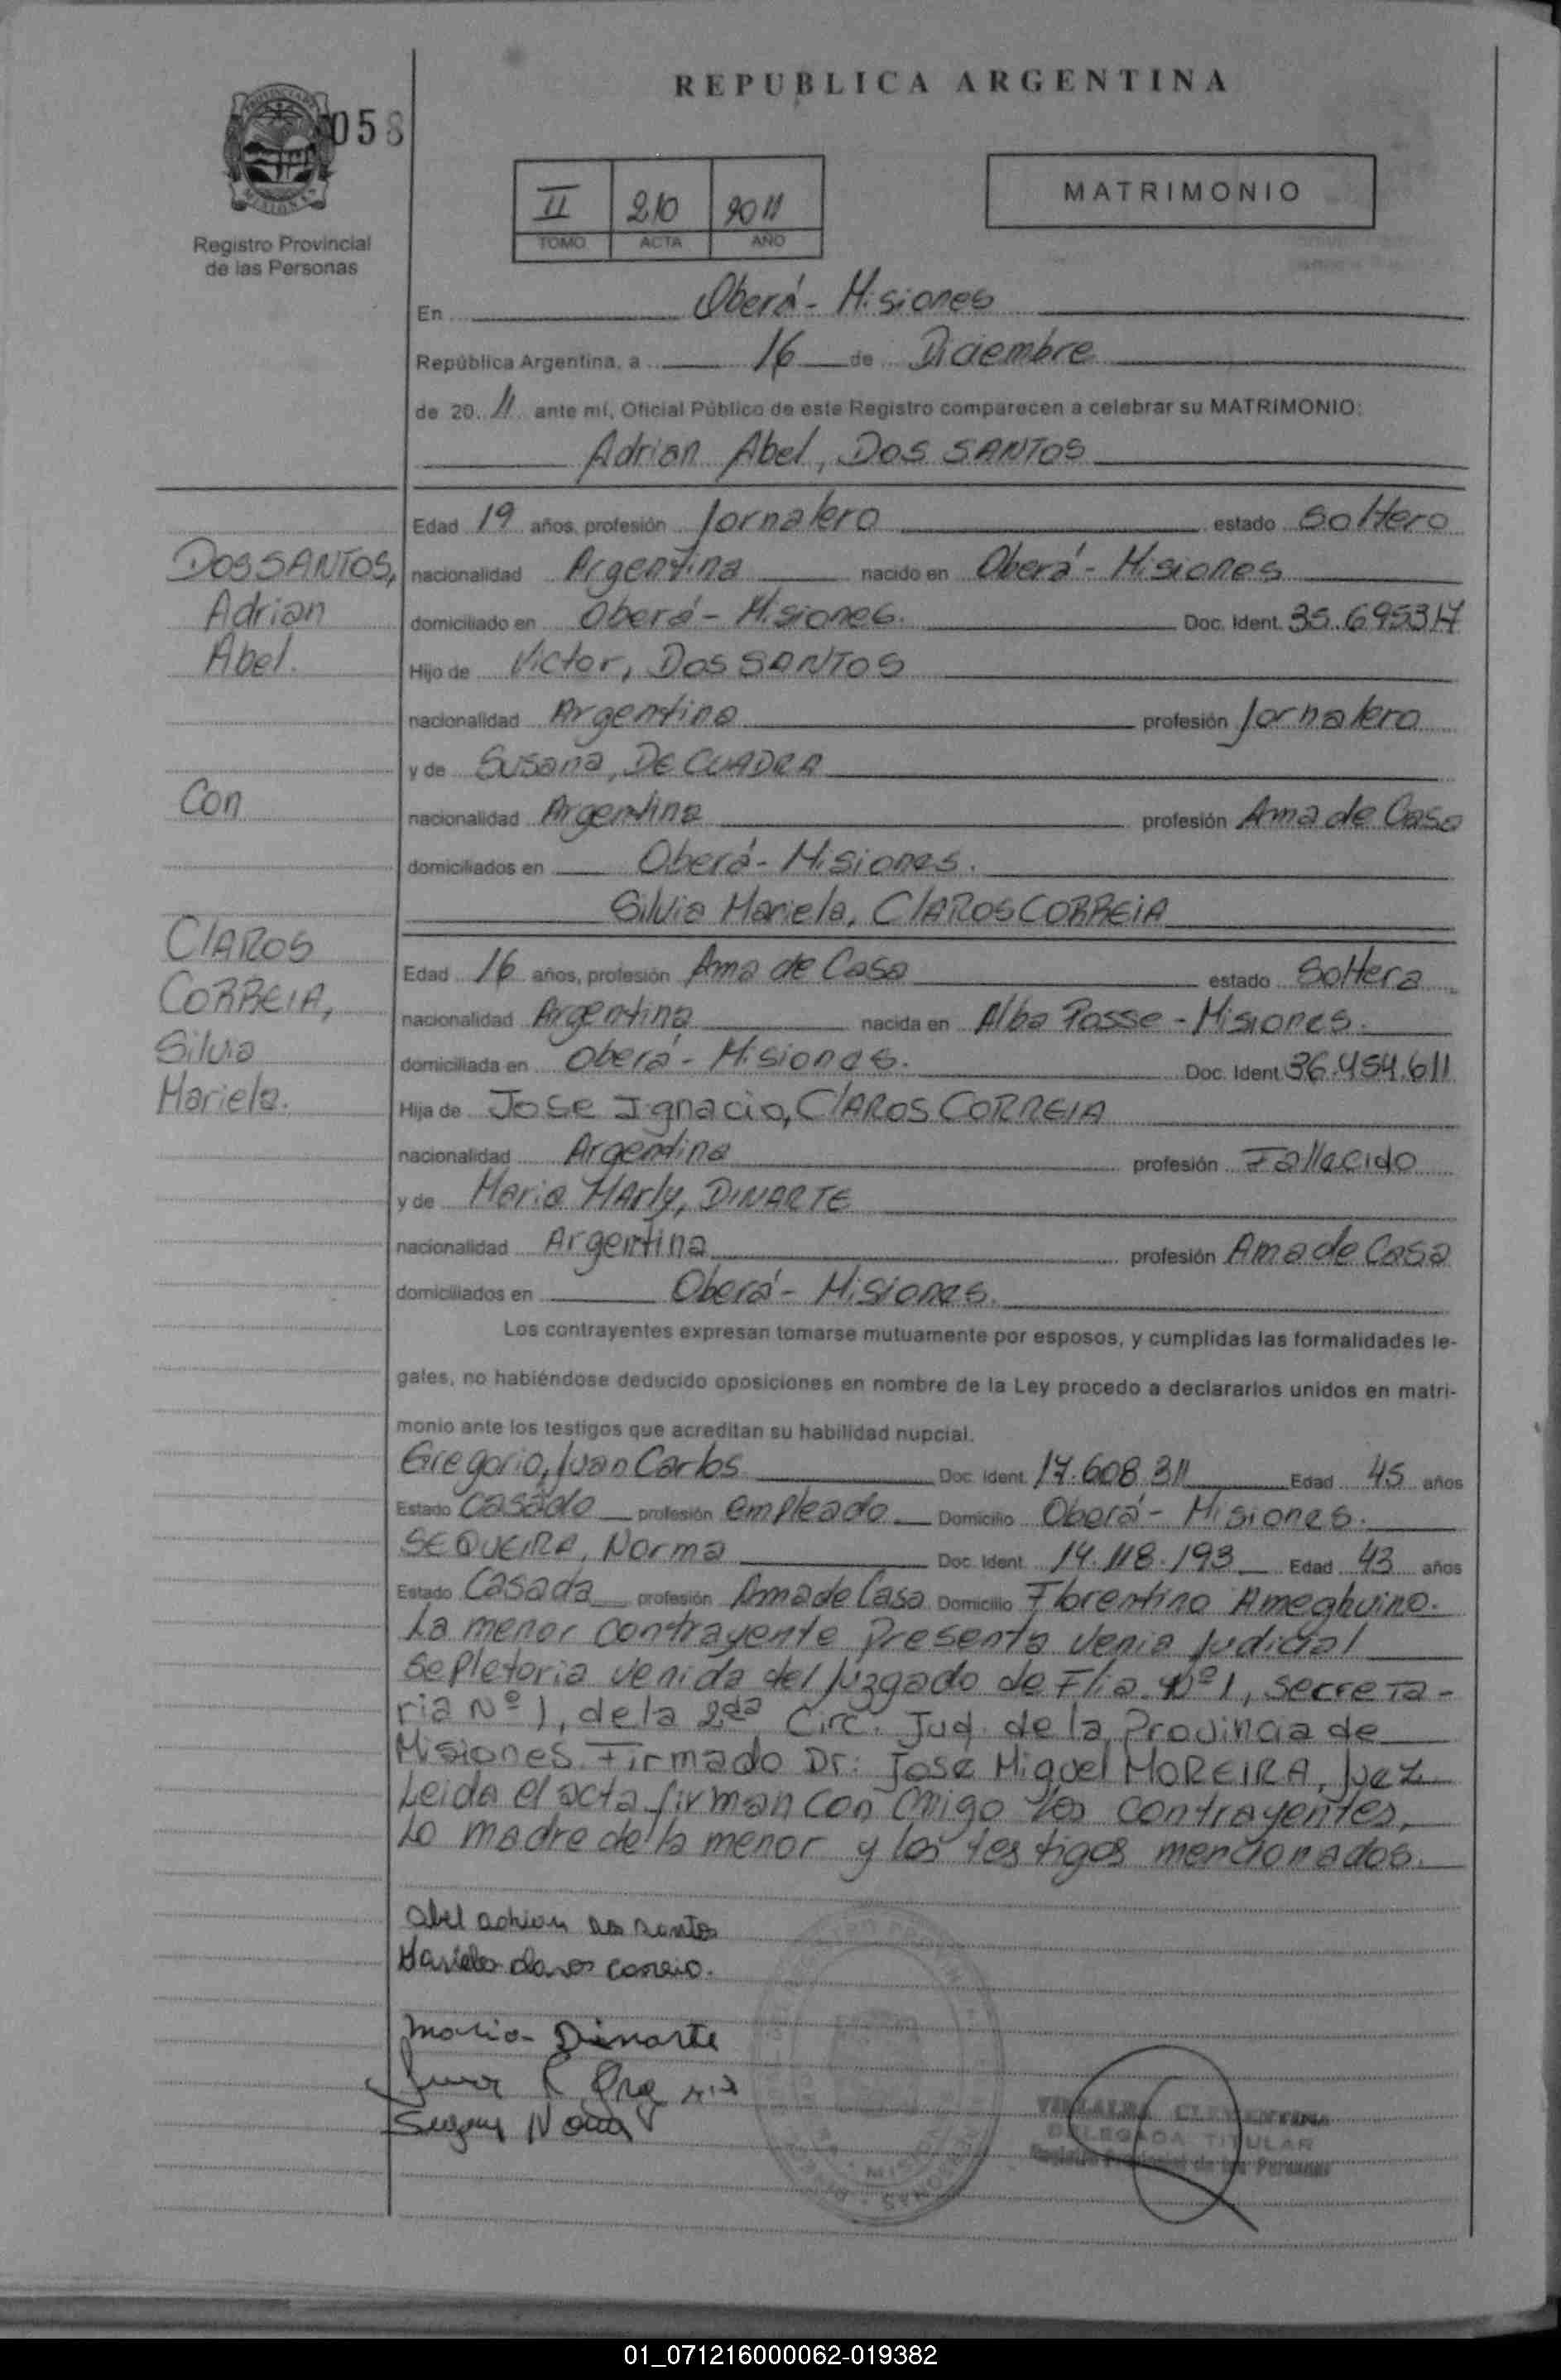 REPUBLICA ARGENTINA
058
II 210 2011
TOMO ACTA AÑO
MATRIMONIO
Registro Provincial
de las Personas
En Oberá - Misiones
República Argentina, a 16 de Diciembre
de 2011 ante mí, Oficial Público de este Registro comparecen a celebrar su MATRIMONIO:
Adrian Abel, DOS SANTOS
Edad 19 años, profesión Jornalero estado Soltero
DOS SANTOS,
Adrian
Abel.
nacionalidad Argentina nacido en Oberá - Misiones
domiciliado en Oberá - Misiones. Doc. Ident. 35.695317
Hijo de Victor, DOS SANTOS
nacionalidad Argentina profesión Jornalero
y de Susana, DE CUADRA
Con
nacionalidad Argentina profesión Ama de Casa
domiciliados en Oberá - Misiones.
Silvia Mariela, ClAROS CORREIA
ClAROS
CORREIA,
Silvia
Mariela.
Edad 16 años, profesión Ama de Casa estado Soltera
nacionalidad Argentina nacida en Alba Posse - Misiones.
domiciliada en Oberá - Misiones. Doc. Ident. 36.454.611
Hija de Jose Ignacio, ClAROS CORREIA
nacionalidad Argentina profesión Fallecido
y de Maria MArly, DINARTE
nacionalidad Argentina profesión Ama de Casa
domiciliados en Oberá - Misiones.
Los contrayentes expresan tomarse mutuamente por esposos, y cumplidas las formalidades le-
gales, no habiéndose deducido oposiciones en nombre de la Ley procedo a declararlos unidos en matri-
monio ante los testigos que acreditan su habilidad nupcial.
Gregorio, Juan Carlos Doc. Ident. 17.608.311 Edad 45 años
Estado Casado profesión empleado Domicilio Oberá - Misiones.
SEQUEIRA, Norma Doc. Ident. 14.118.193 Edad 43 años
Estado Casada profesión Ama de Casa Domicilio Florentino Ameghuino.
La menor contrayente Presenta Venia Judicial
sepletoria venida del Juzgado de Flia. Nº 1, secreta-
ria Nº 1, de la 2da Circ. Jud. de la Provincia de
Misiones Firmado Dr: Jose Miguel MOREIRA, Juez
Leida el acta firman con migo los contrayentes,
La madre de la menor y los testigos mencionados.
Abel adrian dos santos
Mariela claros correia.
Maria Dinarte
VILLALBA CLEMENTINA
DELEGADA TITULAR
Registro Provincial de las Personas
01_071216000062-019382